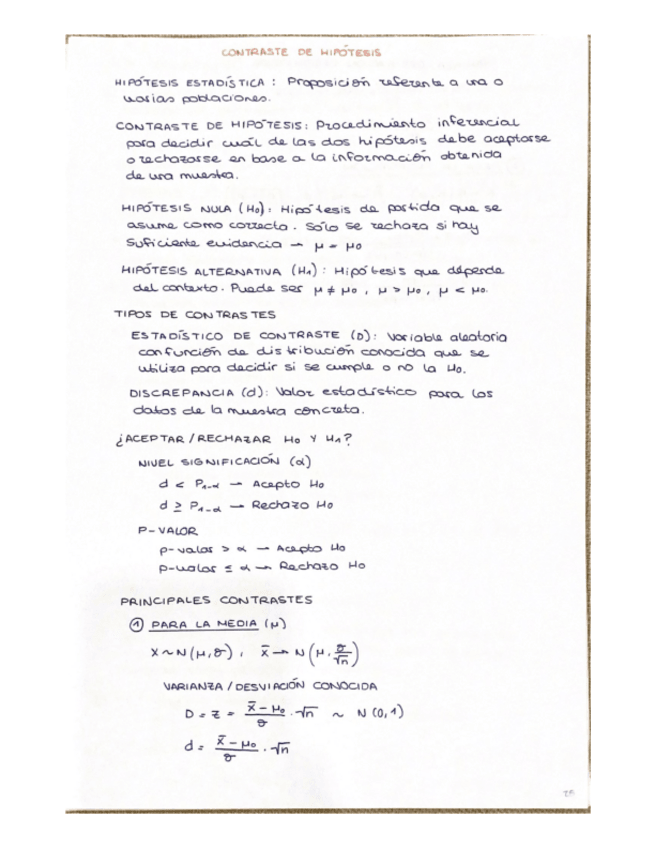 CONTRASTE DE HIPÓTESIS
HIPÓTESIS ESTADÍSTICA : Proposición referente a una o
varias poblaciones.
CONTRASTE DE HIPÓTESIS: Procedimiento inferencial
para decidir cuál de las dos hipótesis debe aceptarse
o rechazarse en base a la información obtenida
de una muestra.
HIPÓTESIS NULA (H₀): Hipótesis de partida que se
asume como correcta. Sólo se rechaza si hay
suficiente evidencia → μ = μ₀
HIPÓTESIS ALTERNATIVA (H₁) : Hipótesis que depende
del contexto. Puede ser μ ≠ μ₀ , μ > μ₀ , μ < μ₀.
TIPOS DE CONTRASTES
ESTADÍSTICO DE CONTRASTE (D): Variable aleatoria
con función de distribución conocida que se
utiliza para decidir si se cumple o no la H₀.
DISCREPANCIA (d): Valor estadístico para los
datos de la muestra concreta.
¿ACEPTAR/RECHAZAR H₀ Y H₁?
NIVEL SIGNIFICACIÓN (α)
d < P₁₋α → Acepto H₀
d ≥ P₁₋α → Rechazo H₀
P-VALOR
p-valor > α → Acepto H₀
p-valor ≤ α → Rechazo H₀
PRINCIPALES CONTRASTES
① PARA LA MEDIA (μ)
X ~ N(μ,σ) , x̄ → N(μ, σ/√n)
VARIANZA/DESVIACIÓN CONOCIDA
D = z = (x̄ - μ₀)/σ · √n ~ N(0,1)
d = (x̄ - μ₀)/σ · √n